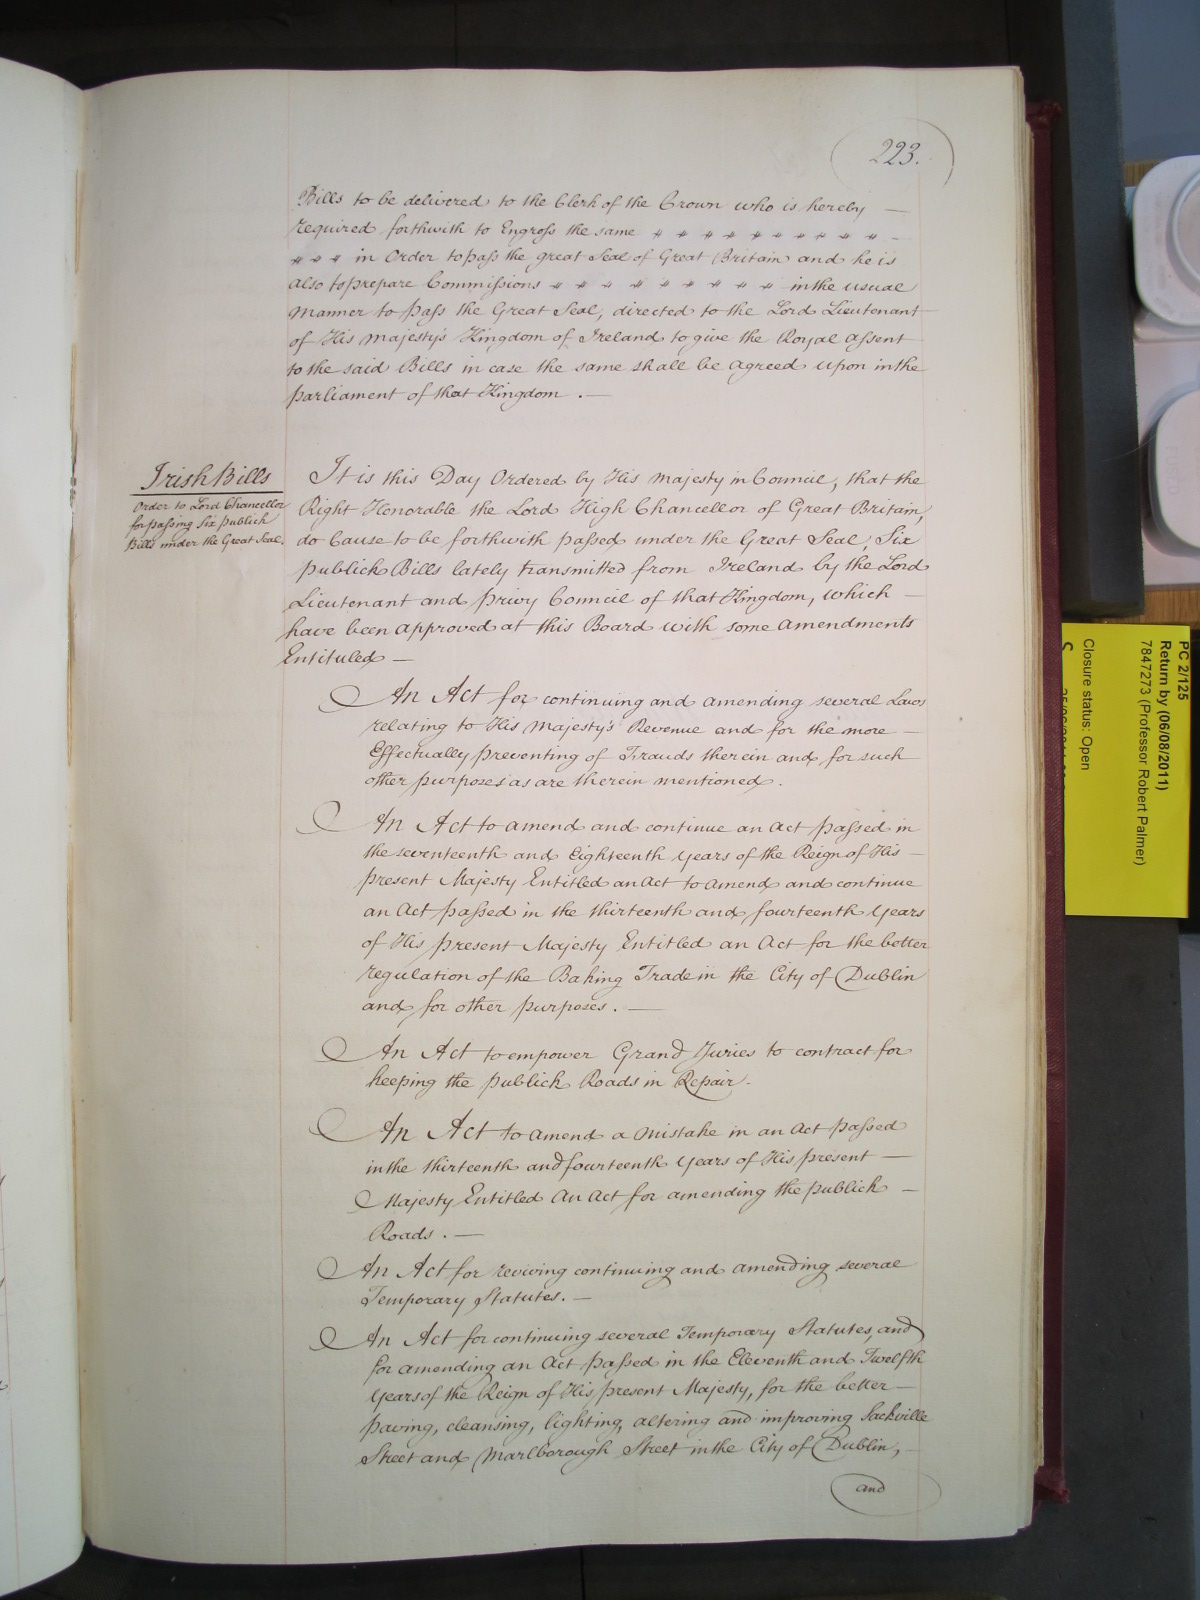 223.
Bills to be delivered to the Clerk of the Crown who is hereby —
required forthwith to Engross the same " " " " " " " " " —
" " " in Order to pass the great Seal of Great Britain and he is
also to prepare Commissions " " " " " " " " " in the usual
manner to pass the Great Seal, directed to the Lord Lieutenant
of His Majesty's Kingdom of Ireland to give the Royal assent
to the said Bills in case the same shall be agreed upon in the
Parliament of that Kingdom . —
Irish Bills
Order to Lord Chancellor
for passing six publick
Bills under the Great Seal.
It is this Day Ordered by His Majesty in Council, that the
Right Honorable the Lord High Chancellor of Great Britain,
do Cause to be forthwith passed under the Great Seal, Six
publick Bills lately transmitted from Ireland by the Lord
Lieutenant and privy Council of that Kingdom, which —
have been approved at this Board with some amendments
Entituled —
An Act for continuing and amending several Laws
relating to His Majesty's Revenue and for the more —
Effectually preventing of Frauds therein and for such
other purposes as are therein mentioned .
An Act to amend and continue an Act passed in
the seventeenth and Eighteenth years of the Reign of His —
present Majesty Entitled an Act to amend and continue
an Act passed in the thirteenth and fourteenth Years
of His present Majesty Entitled an Act for the better
regulation of the Baking Trade in the City of Dublin
and for other purposes . —
An Act to empower Grand Juries to contract for
keeping the publick Roads in Repair.
An Act to amend a mistake in an Act passed
in the thirteenth and fourteenth years of His present —
Majesty Entitled An Act for amending the publick —
Roads . —
An Act for reviving continuing and amending several
Temporary Statutes. —
An Act for continuing several Temporary Statutes, and
for amending an Act passed in the Eleventh and Twelfth
Years of the Reign of His present Majesty, for the better —
paving, cleansing, lighting, altering and improving Sackville
Street and Marlborough Street in the City of Dublin, —
and
PC 2/125
Return by (06/08/2011)
7847273 (Professor Robert Palmer)
Closure status: Open